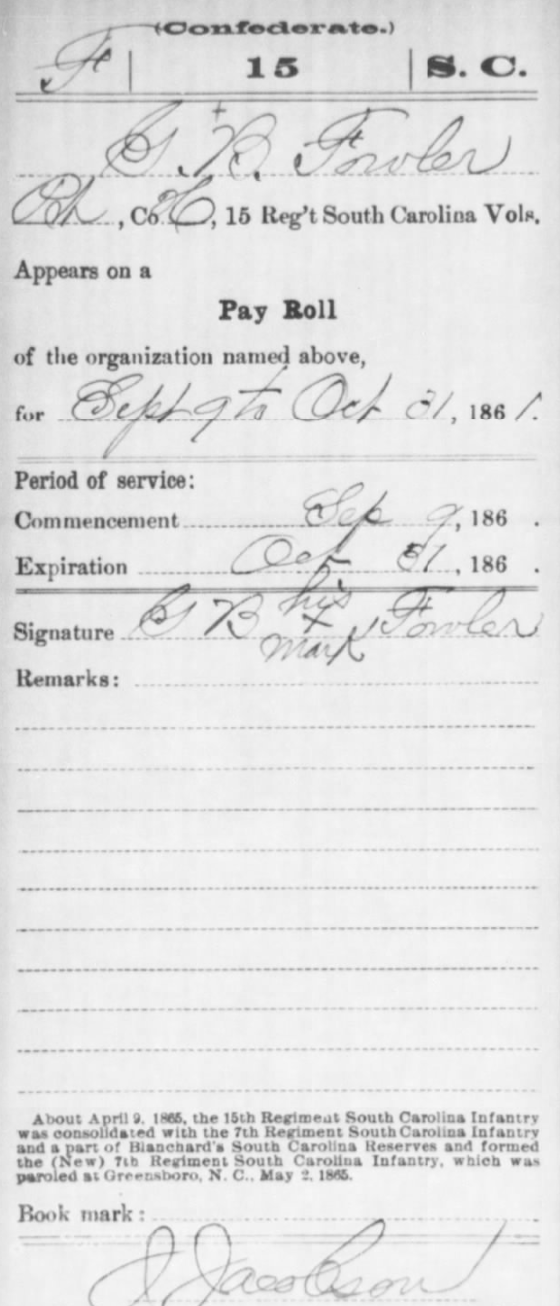 (Confederate.)
F | 15 | S. C.
G. B. Fowler
Co. H, 15 Reg't South Carolina Vols.
Appears on a
Pay Roll
of the organization named above,
for Sept 9 to Oct 31, 1861.
Period of service:
Commencement Sep 9, 186 .
Expiration Oct 31, 186 .
his
Signature G B x Fowler
mark
Remarks:
About April 9, 1865, the 15th Regiment South Carolina Infantry
was consolidated with the 7th Regiment South Carolina Infantry
and a part of Blanchard's South Carolina Reserves and formed
the (New) 7th Regiment South Carolina Infantry, which was
paroled at Greensboro, N. C., May 2, 1865.
Book mark:
J Jacobson